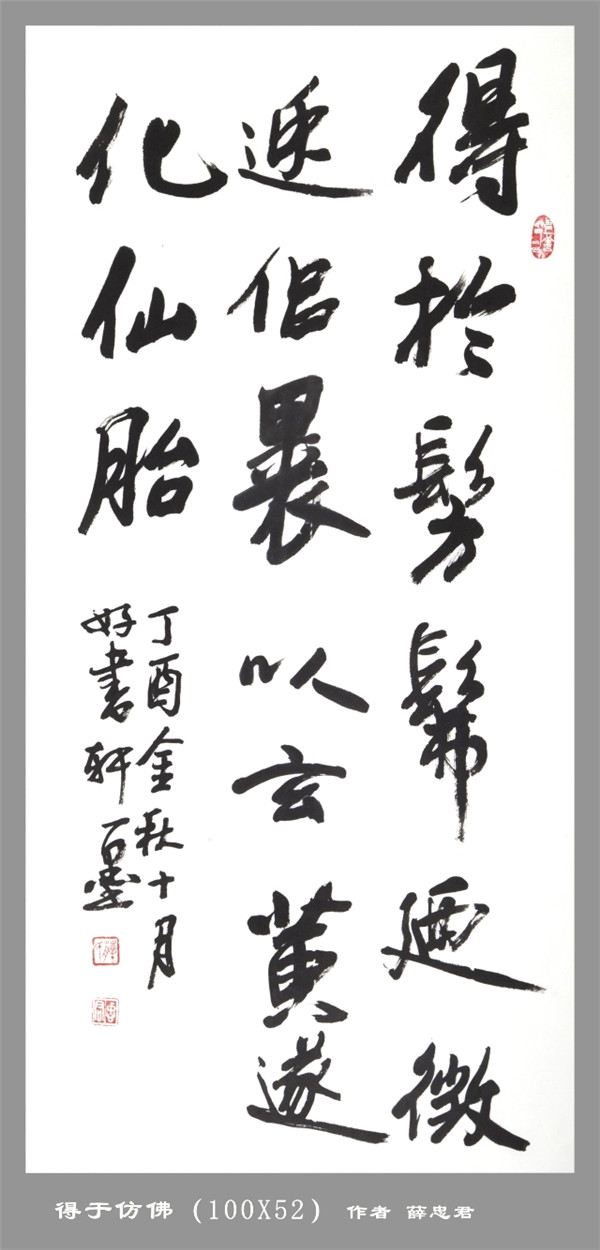 得於髣髴廼徵
侣裹以玄黄遂
化仙胎
丁酉金秋十月
好書軒石墨
得于仿佛 (100X52) 作者 薛忠君